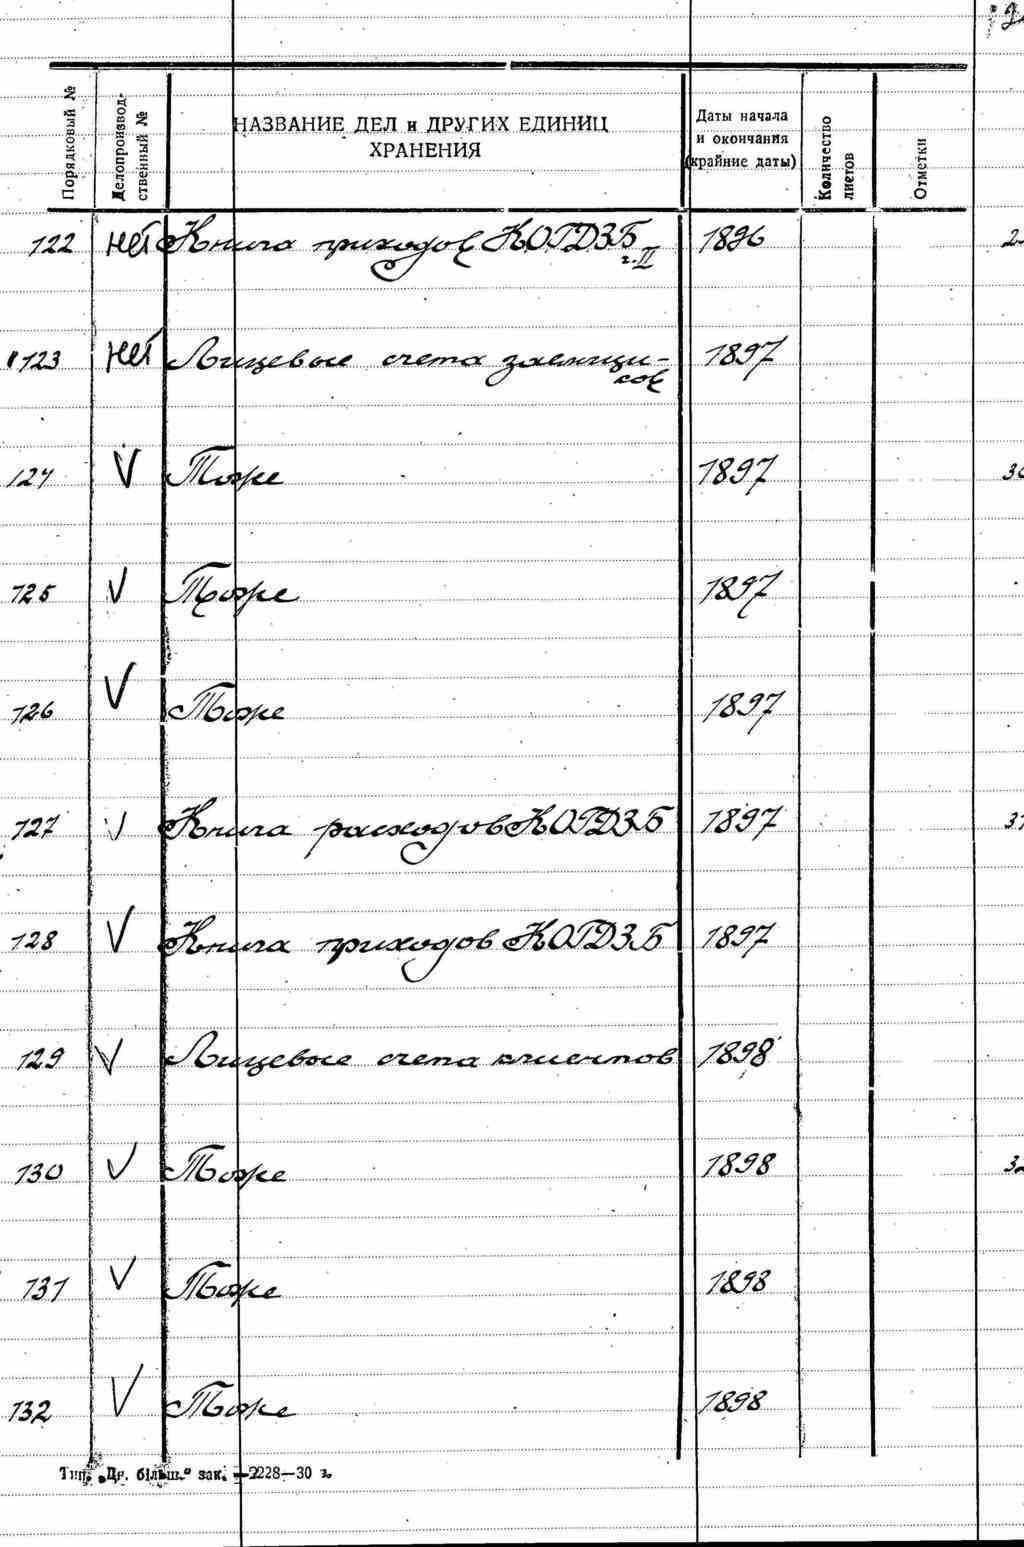 Порядковый №
Делопроизвод-
ственный №
НАЗВАНИЕ ДЕЛ и ДРУГИХ ЕДИНИЦ
ХРАНЕНИЯ
Даты начала
и окончания
(крайние даты)
Количество
листов
Отметки
122 нет Книга приходов КОГДЗБ 1896
г. II
123 нет Лицевые счета заемщи- 1897
ков
124 V Тоже 1897
125 V Тоже 1897
126 V Тоже 1897
127 V Книга расходов КОГДЗБ 1897
128 V Книга приходов КОГДЗБ 1897
129 V Лицевые счета клиентов 1898
130 V Тоже 1898
131 V Тоже 1898
132 V Тоже 1898
Тип. „Др. більш.“ зак. 2228—30 г.